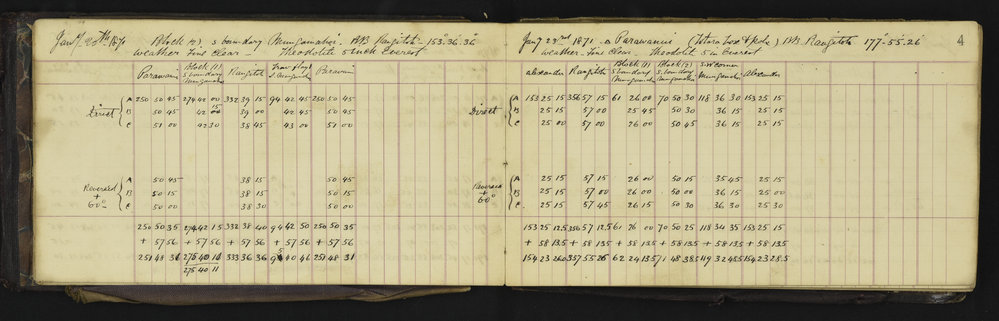 Block (2) S boundary
weather Fine Clear - Theodolite 5 inch Everest
Parawanui Block (1) S boundary Rangitoto Parawanui
Direct
A 250 50 45 274 42 00 332 39 15 94 42 45 250 50 45
B 50 45 42 00 39 00 42 45 50 45
C 51 00 42 30 38 45 43 00 51 00
Reversed + 60°
A 50 45 38 15 50 45
B 50 15 38 15 50 15
C 50 00 38 30 50 00
250 50 35 274 42 15 332 38 40 94 42 50 250 50 35
+ 57 56 + 57 56 + 57 56 + 57 56 + 57 56
251 48 31 333 36 36 40 46 251 48 31
275 40 11
4
Jany 23rd 1871 Parawanui
weather - Fine Clear. Theodolite 5 in Everest
Alexander Rangitoto Block (1) S boundary Block (2) S. boundary S.W corner Alexander
Direct
A 153 25 15 356 57 15 61 26 00 70 50 30 118 36 30 153 25 15
B 25 15 57 00 25 45 50 30 36 15 25 15
C 25 00 57 00 26 00 50 45 36 15 25 15
Reversed + 60°
A 25 15 57 15 26 00 50 15 35 45 25 15
B 25 15 57 00 26 00 50 00 36 15 25 00
C 25 15 57 45 26 15 50 30 36 30 25 30
153 25 12.5 61 26 00 70 50 25 153 25 15
+ 58 13.5 + 58 13.5 + 58 13.5 + 58 13.5 + 58 13.5 + 58 13.5
154 23 26.0 62 24 13.5 71 48 38.5 154 23 28.5